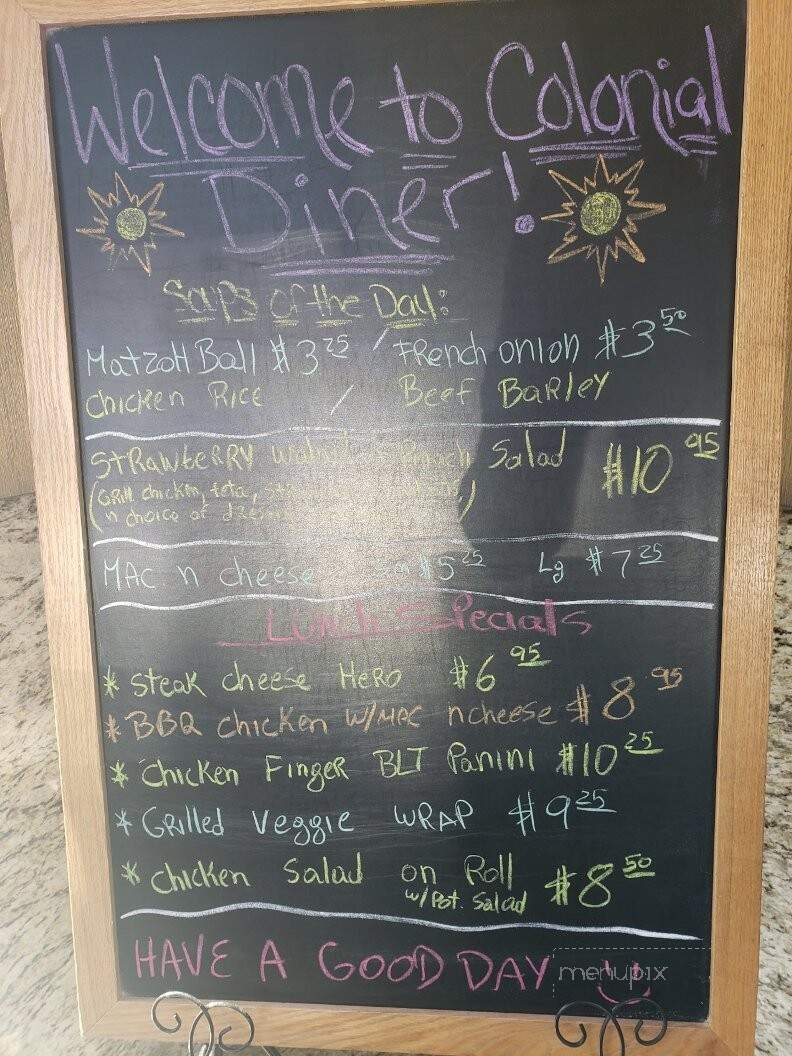 Welcome to Colonial
Diner!
Soups of the Day:
Matzoh Ball $3 25 / French onion $3 50
Chicken Rice / Beef Barley
Strawberry Salad $10 95
(Grill chicken, feta,
n choice of
MAC n cheese $5 25 Lg $7 25
Lunch Specials
* Steak cheese Hero $6 95
* BBQ chicken w/MAC ncheese $8 95
* Chicken Finger BLT Panini $10 25
* Grilled Veggie WRAP $9 25
* Chicken Salad on Roll $8 50
w/Pot. Salad
HAVE A GOOD DAY
menupix